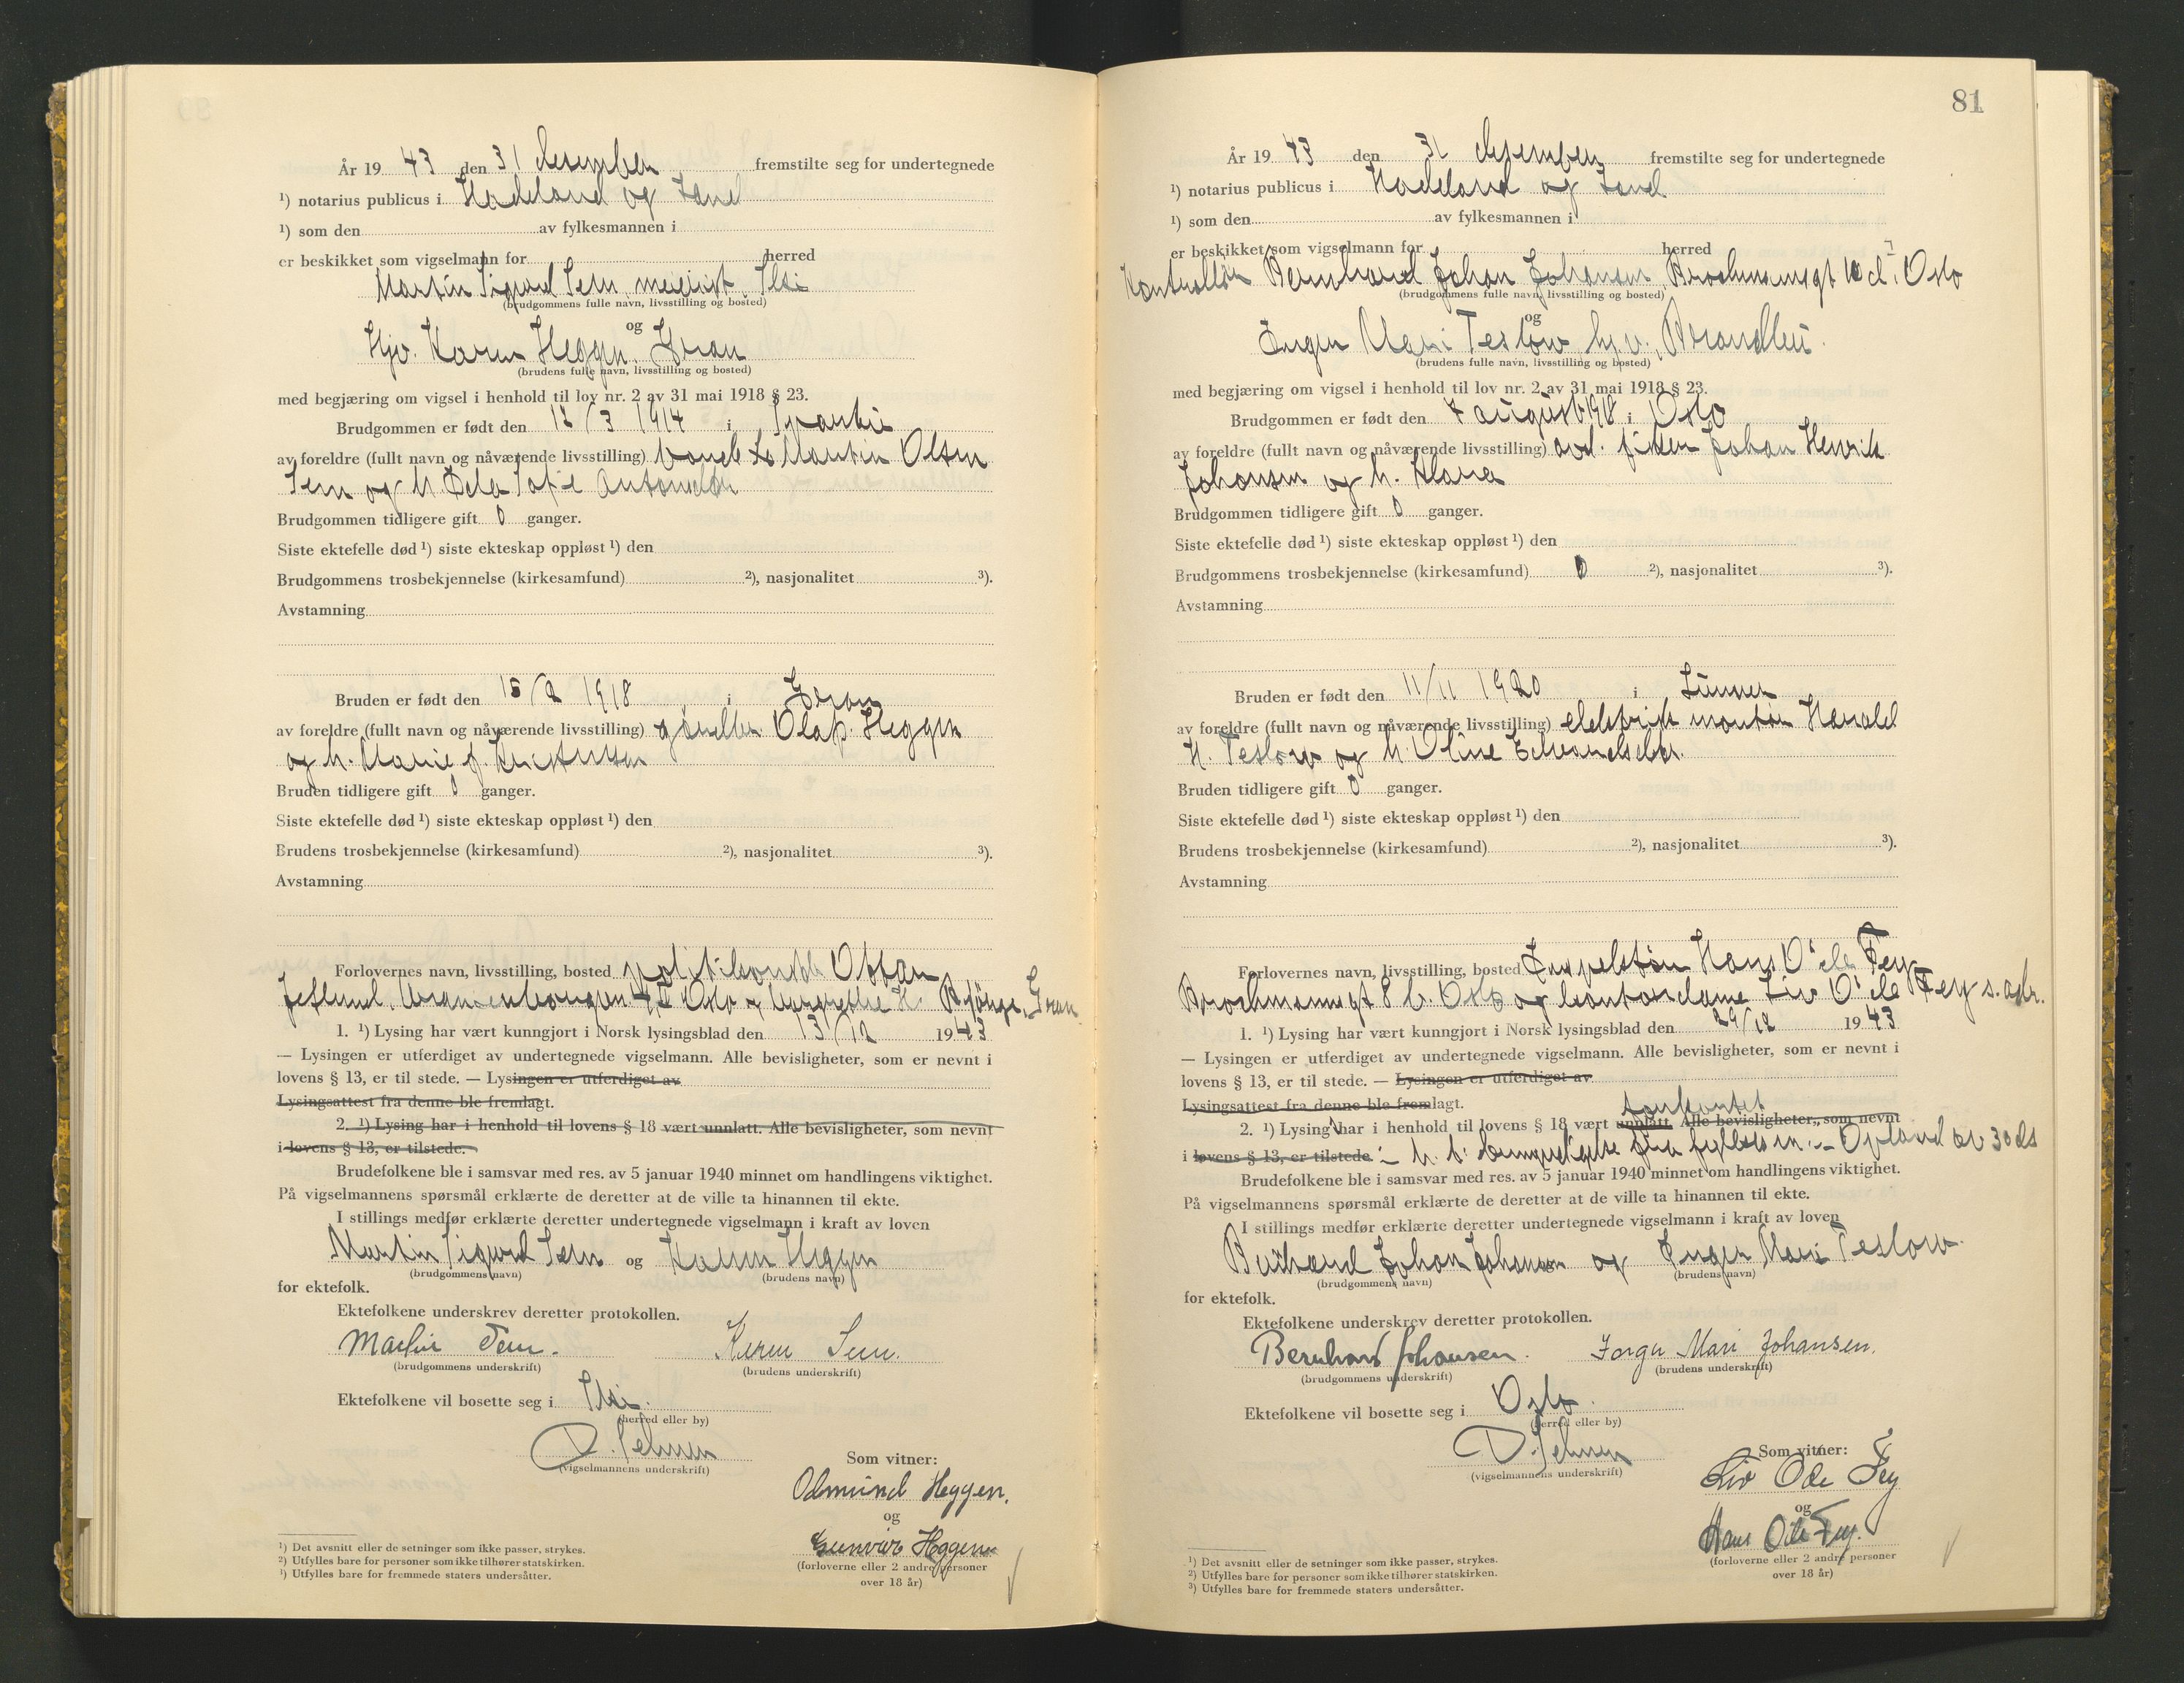 År 19 43 den 31 desember fremstilte seg for undertegnede
¹) notarius publicus i Hadeland og Land
¹) som den av fylkesmannen i
er beskikket som vigselmann for herred
Martin Sigurd Sem, meierist,
(brudgommens fulle navn, livsstilling og bosted)
og
Hjv. Karen Heggen, Gran
(brudens fulle navn, livsstilling og bosted)
med begjæring om vigsel i henhold til lov nr. 2 av 31 mai 1918 § 23.
Brudgommen er født den 12/3 1914 i
av foreldre (fullt navn og nåværende livsstilling) Martin Olsen
Sem og h. Sofie
Brudgommen tidligere gift 0 ganger.
Siste ektefelle død ¹) siste ekteskap oppløst ¹) den
Brudgommens trosbekjennelse (kirkesamfund) ²), nasjonalitet ³).
Avstamning
Bruden er født den 15/2 1918 i Gran
av foreldre (fullt navn og nåværende livsstilling) Olaf Heggen
og h. Marie f.
Bruden tidligere gift 0 ganger.
Siste ektefelle død ¹) siste ekteskap oppløst ¹) den
Brudens trosbekjennelse (kirkesamfund) ²), nasjonalitet ³).
Avstamning
Forlovernes navn, livsstilling, bosted
Oslo og Gran
1. ¹) Lysing har vært kunngjort i Norsk lysingsblad den 13/12 1943
— Lysingen er utferdiget av undertegnede vigselmann. Alle bevisligheter, som er nevnt i
lovens § 13, er til stede. — Lysingen er utferdiget av
Lysingsattest fra denne ble fremlagt.
2. ¹) Lysing har i henhold til lovens § 18 vært unnlatt. Alle bevisligheter, som nevnt
i lovens § 13, er tilstede.
Brudefolkene ble i samsvar med res. av 5 januar 1940 minnet om handlingens viktighet.
På vigselmannens spørsmål erklærte de deretter at de ville ta hinannen til ekte.
I stillings medfør erklærte deretter undertegnede vigselmann i kraft av loven
Martin Sigurd Sem og Karen Heggen
(brudgommens navn) (brudens navn)
for ektefolk.
Ektefolkene underskrev deretter protokollen.
Martin Sem. Karen Sem.
(brudgommens underskrift) (brudens underskrift)
Ektefolkene vil bosette seg i
(herred eller by)
(vigselmannens underskrift)
Som vitner:
Odmund Heggen.
og
Gunvor Heggen
(forloverne eller 2 andre personer
over 18 år)
¹) Det avsnitt eller de setninger som ikke passer, strykes.
²) Utfylles bare for personer som ikke tilhører statskirken.
³) Utfylles bare for fremmede staters undersåtter.
81
År 19 43 den 31 desember fremstilte seg for undertegnede
¹) notarius publicus i Hadeland og Land
¹) som den av fylkesmannen i
er beskikket som vigselmann for herred
Kontrollør Bernhard Johan Johansen, Brochmannsgt Oslo
(brudgommens fulle navn, livsstilling og bosted)
og
Inger Mari Tesløw hjv., Brandbu.
(brudens fulle navn, livsstilling og bosted)
med begjæring om vigsel i henhold til lov nr. 2 av 31 mai 1918 § 23.
Brudgommen er født den 7 august 1918 i Oslo
av foreldre (fullt navn og nåværende livsstilling) Johan Henrik
Johansen og h. Klara
Brudgommen tidligere gift 0 ganger.
Siste ektefelle død ¹) siste ekteskap oppløst ¹) den
Brudgommens trosbekjennelse (kirkesamfund) 0 ²), nasjonalitet ³).
Avstamning
Bruden er født den 11/11 1920 i Lunner
av foreldre (fullt navn og nåværende livsstilling) elektrisk montør Harald
H. Tesløw og h. Oline
Bruden tidligere gift 0 ganger.
Siste ektefelle død ¹) siste ekteskap oppløst ¹) den
Brudens trosbekjennelse (kirkesamfund) ²), nasjonalitet ³).
Avstamning
Forlovernes navn, livsstilling, bosted Hans Ode Fey
Brochmannsgt 8 b. Oslo og kontordame Liv Ode Fey s. adr.
1. ¹) Lysing har vært kunngjort i Norsk lysingsblad den 29/12 1943
— Lysingen er utferdiget av undertegnede vigselmann. Alle bevisligheter, som er nevnt i
lovens § 13, er til stede. — Lysingen er utferdiget av
Lysingsattest fra denne ble fremlagt.
forkortet
2. ¹) Lysing har i henhold til lovens § 18 vært unnlatt. Alle bevisligheter, som nevnt
i lovens § 13, er tilstede fra Opland av 30 ds
Brudefolkene ble i samsvar med res. av 5 januar 1940 minnet om handlingens viktighet.
På vigselmannens spørsmål erklærte de deretter at de ville ta hinannen til ekte.
I stillings medfør erklærte deretter undertegnede vigselmann i kraft av loven
Bernhard Johan Johansen og Inger Mari Tesløw.
(brudgommens navn) (brudens navn)
for ektefolk.
Ektefolkene underskrev deretter protokollen.
Bernhard Johansen. Inger Mari Johansen.
(brudgommens underskrift) (brudens underskrift)
Ektefolkene vil bosette seg i Oslo.
(herred eller by)
(vigselmannens underskrift)
Som vitner:
Liv Ode Fey
og
Hans Ode Fey.
(forloverne eller 2 andre personer
over 18 år)
¹) Det avsnitt eller de setninger som ikke passer, strykes.
²) Utfylles bare for personer som ikke tilhører statskirken.
³) Utfylles bare for fremmede staters undersåtter.